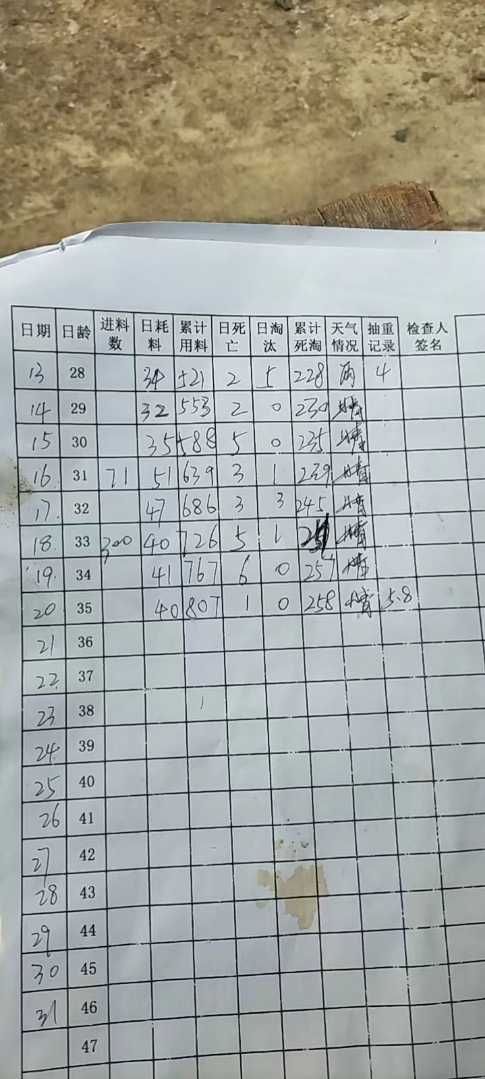 日期 日龄 进料数 日耗料 累计用料 日死亡 日淘汰 累计死淘 天气情况 抽重记录 检查人签名
13 28 34 521 2 5 228 雨 4
14 29 32 553 2 0 230 晴
15 30 35 588 5 0 235 晴
16 31 71 51 639 3 1 239 晴
17 32 47 686 3 3 245 晴
18 33 300 40 726 5 1 251 晴
19 34 41 767 6 0 257 晴
20 35 40 807 1 0 258 晴 5.8
21 36
22 37
23 38
24 39
25 40
26 41
27 42
28 43
29 44
30 45
31 46
47